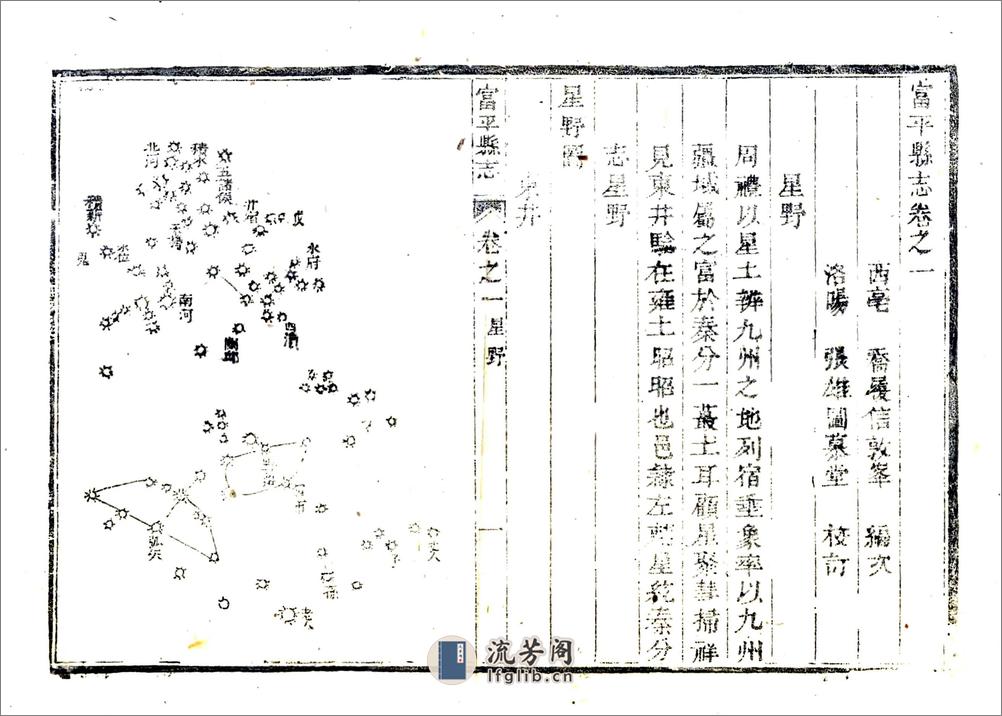 富平縣志卷之一
西亳 喬履信敦峯 編次
洛陽 張雄圖慕堂 校訂
星野
周禮以星土辨九州之地列宿垂象率以九州
疆域屬之富於秦分一蕞土耳顧星聚彗掃祥
見東井驗在雍土昭昭也邑隸左輔星統秦分
志星野
星野圖
東井
富平縣志 卷之一 星野 一
五諸侯
積水
北河
積薪
天罇
井宿
戊
水府
水位
鬼
南河
四瀆
闕邱
軍市
弧矢
丈人
孫
老人
流芳阁
lfglib.cn